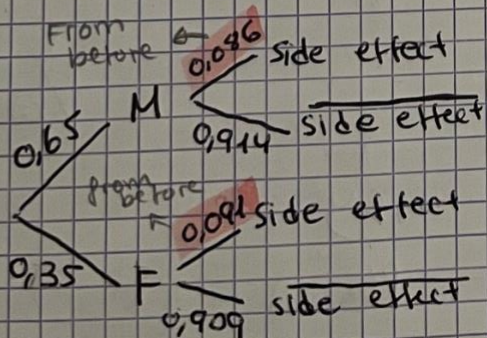 From
before ← 0,086 side effect
M
0,65 0,914 side effect
from
before
0,091 side effect
0,35 F
0,909 side effect